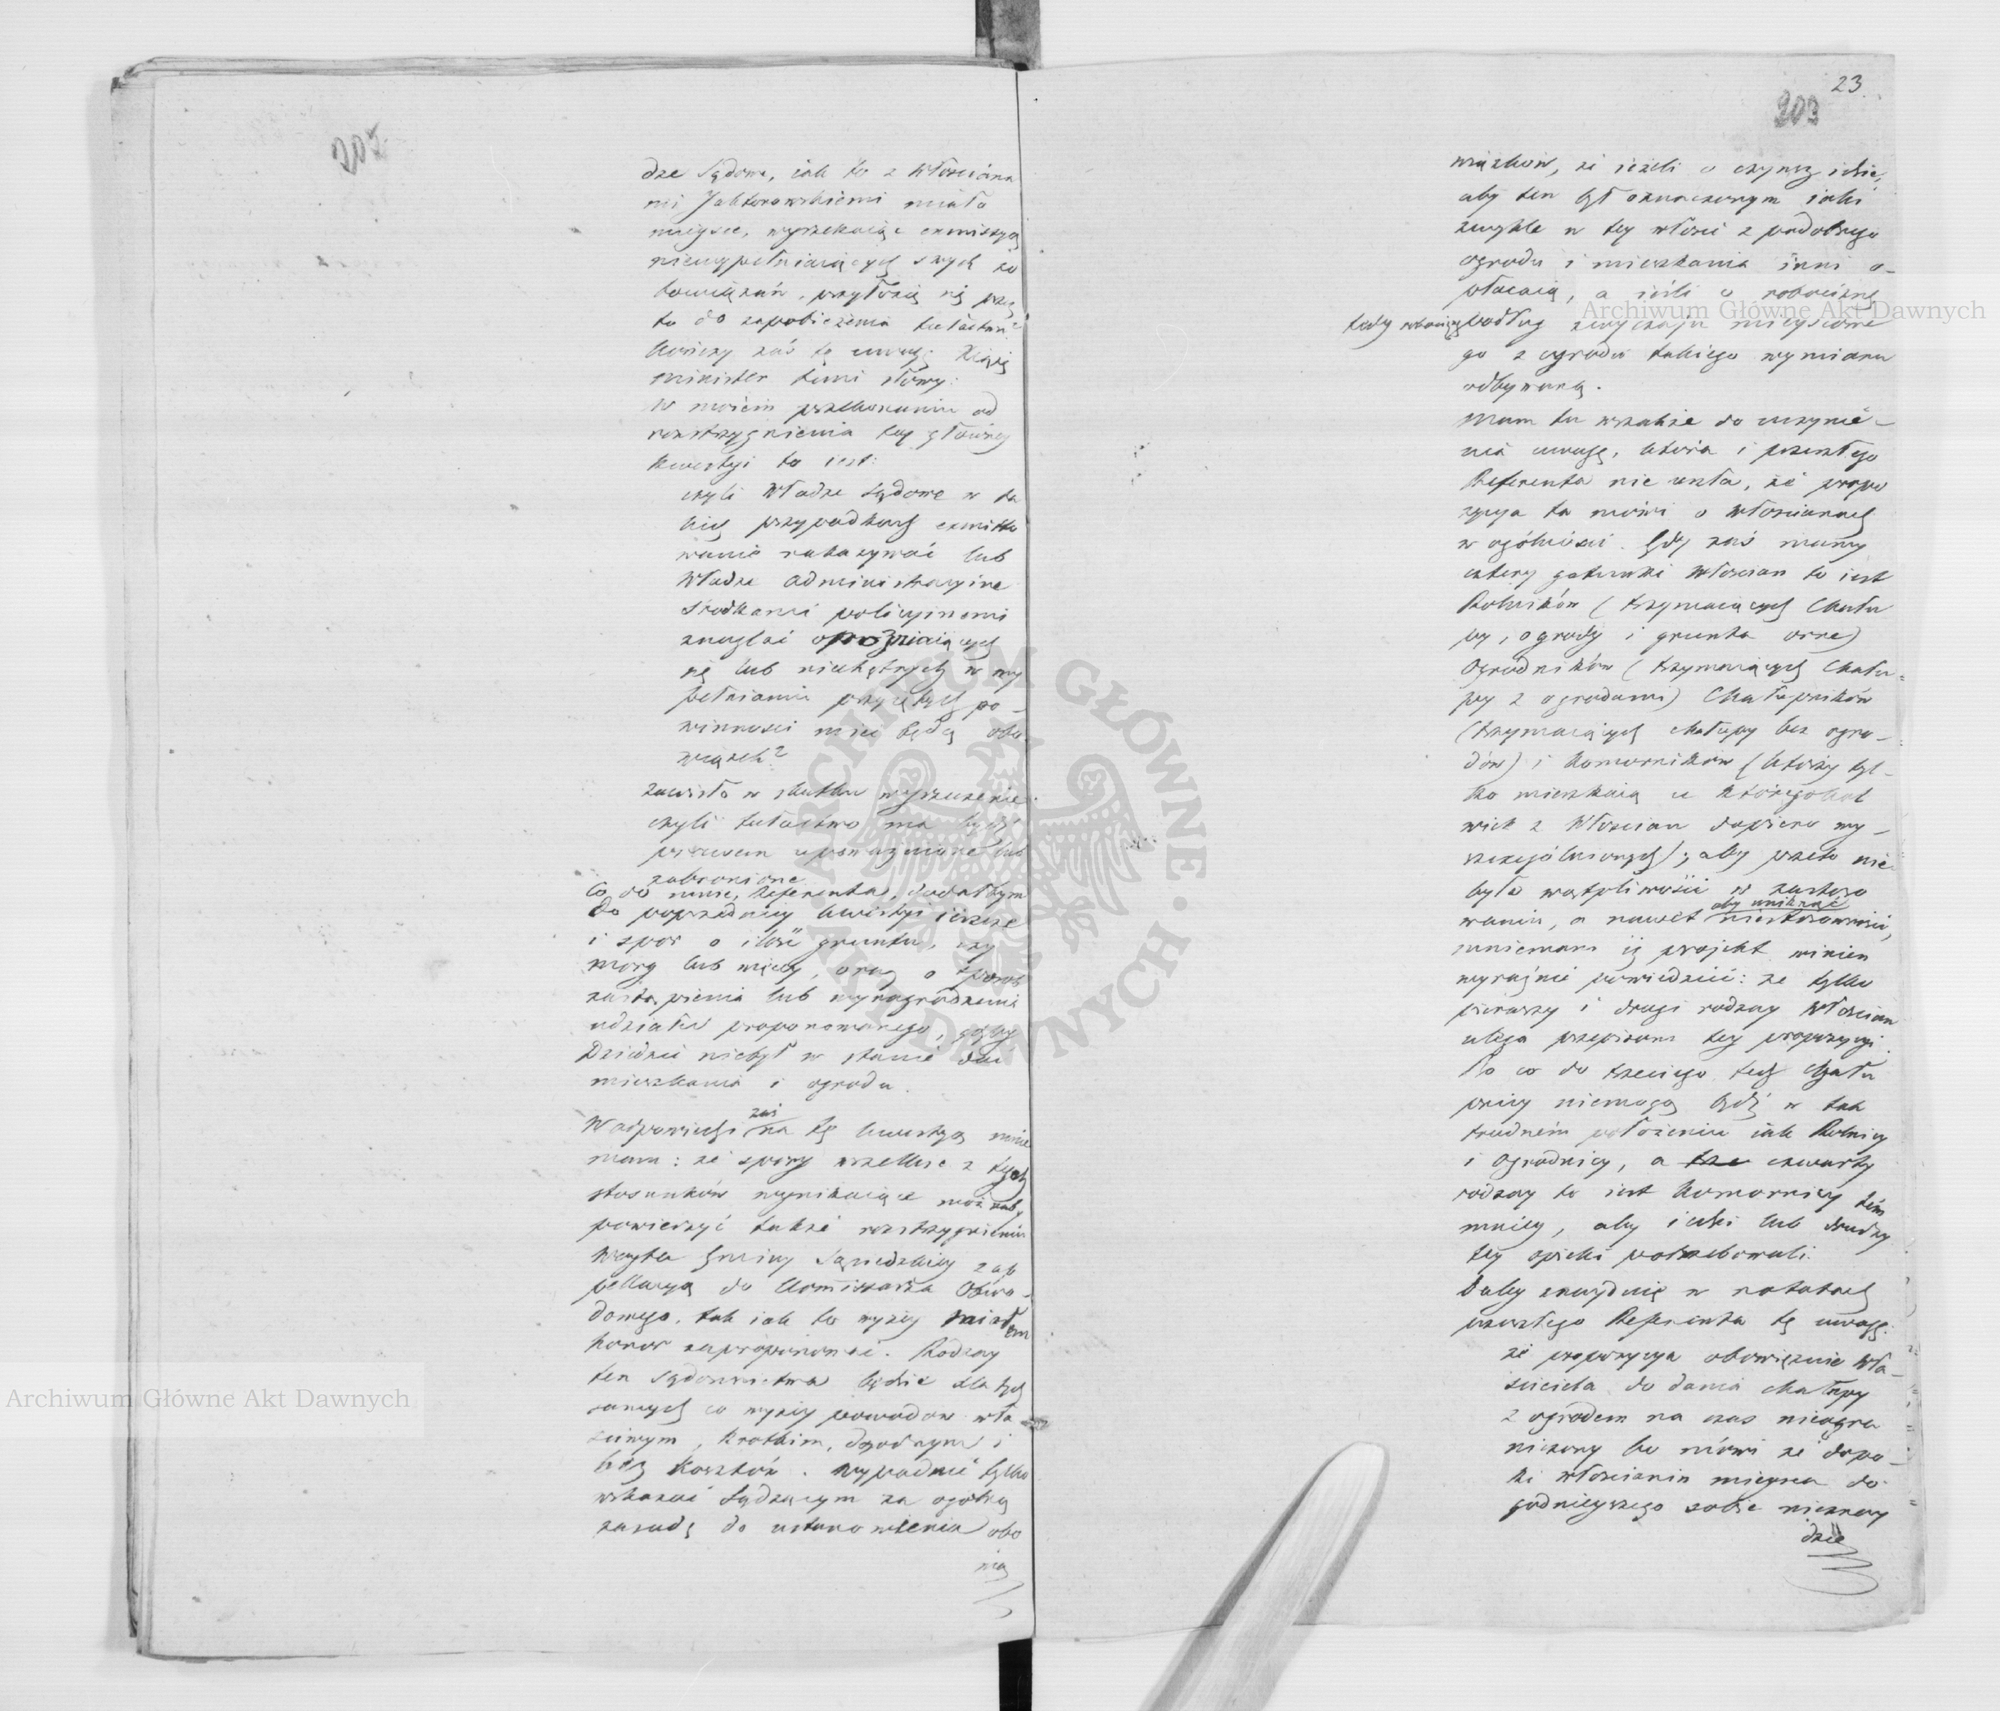 202
dze Sądowe, iak to z Włościana
mi Jaktorowskiemi miało
mieysce, wyrzekaiąc exmissyą
niewypełniaiących swych zo
bowiązań, przyłożą się przez
to do zapobieżenia tułactwu?
Kończy zaś tę uwagę Xiążę
Minister temi słowy:
W moiem przekonaniu od
rozstrzygnienia tey główney
kwestyi to iest:
czyli Władze Sądowe w ta
kich przypadkach exmitto
wanie nakazywać lub
Władze administracyine
środkami policyinemi
znaglać opóźniaiących
się lub niechętnych w wy
pełnianiu przyiętych po-
winności mieć będą obo
wiązek?
zawisło w skutku wyrzeczenie
czyli tułactwo ma bydź
prawem upoważnione lub
zabronione
Co do mnie, Referenta, dodałbym
do poprzedniey kwestyi ieszcze
i spór o ilość gruntu, czy
morg lub więcey, oraz o sposób
zastąpienia lub wynagrodzenia
udziału proponowanego, gdyby
Dziedzic niebył w stanie dać
mieszkania i ogrodu.
W odpowiedzi zaś na tę kwestyą mnie
mam: że spory wszelkie z tych
stosunków wynikaiące możnaby
powierzyć także rozstrzygnieniu
Wóyta Gminy Sąsiedzkiey z ap
pellacyą do Kommissarza Obwo-
dowego, tak iak to wyżey miałem
honor zaproponować. Rodzay
ten sądownictwa będzie dla tych
samych co wyżey powodów wła
ściwym, krótkim, dogodnym i
bez kosztów. Wypadnie tylko
wskazać Sądzącym za ogólną
zasadę do ustanowienia obo
wią
23
203
wiązków, że ieżeli o czynsz idzie,
aby ten był oznaczonym iaki
zwykle w tey włości z podobnego
ogrodu i mieszkania inni o-
płacaią, a ieśli o robociznę
tedy robociznę podług zwyczaju mieyscowe
go z ogrodu takiego wymiaru
odbywaną.
Mam tu wszakże do uczynie-
nia uwagę, która i przeszłego
Referenta nie uszła, że propo
zycya ta mówi o włościanach
w ogólności. Gdy zaś mamy
cztery gatunki Włościan to iest
Rolników (trzymaiących chału
py, ogrody i grunta orne)
Ogrodników (trzymaiących chału-
py z ogrodami) Chałupników
(trzymaiących chałupy bez ogro-
dów) i Komorników (którzy tyl-
ko mieszkaią u któregokol
wiek z Włościan dopiero wy-
szczególnionych); aby przeto nie
było wątpliwości w zastoso
waniu, a nawet aby uniknąć niestosowności,
mniemam iż projekt winien
wyraźnie powiedzieć: że tylko
pierwszy i drugi rodzay Włościan
ulega przepisom tey propozycyi.
Bo co do trzeciego, tych Chału
pnicy niemogą bydź w tak
trudném położeniu iak Rolnicy
i Ogrodnicy, a czwarty
rodzay to iest Komornicy tém
mniey, aby iedni lub drudzy
tey opieki potrzebowali.
Daley znayduię w notatach
przeszłego Referenta tę uwagę:
że propozycya obowiązuie Wła-
ściciela do dania chałupy
z ogrodem na czas nieogra
niczony bo mówi że dopo-
ki włościanin mieysca do
godnieyszego sobie nieznay
dzie
Archiwum Główne Akt Dawnych
Archiwum Główne Akt Dawnych
ARCHIWUM GŁÓWNE AKT DAWNYCH